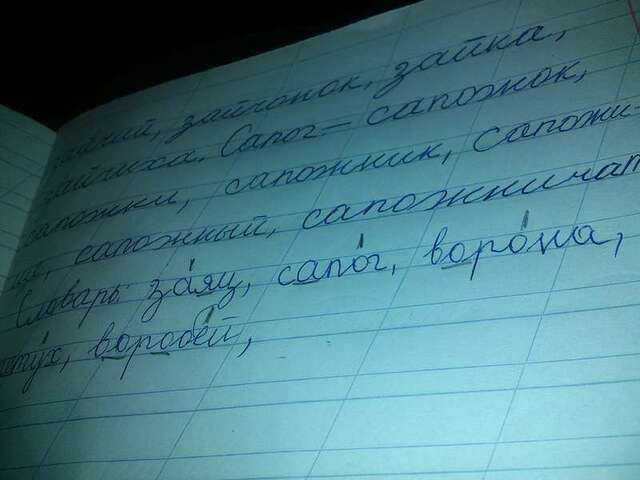 зайчонок, зайка,
зайчиха. Сапог - сапожок,
сапожки, сапожник, сапожн
сапожный, сапожничат
Словарь: заяц, сапог, ворона,
воробей,